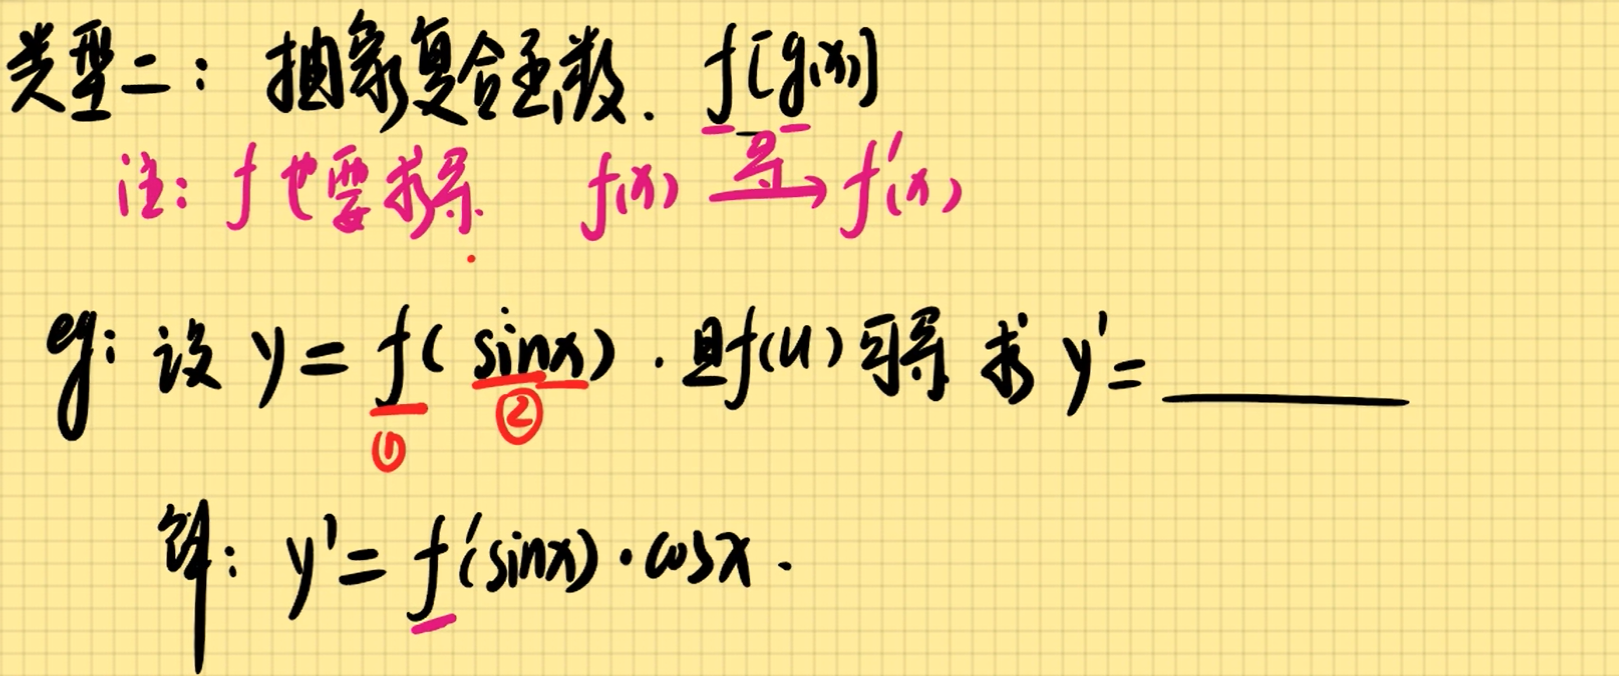 类型二：抽象复合函数. f[g(x)]
注：f也要求导. f(x) 导→ f'(x)
eg：设 y = f(sinx). 且f(u)可导 求 y' = ______
① ②
解：y' = f'(sinx)·cosx.